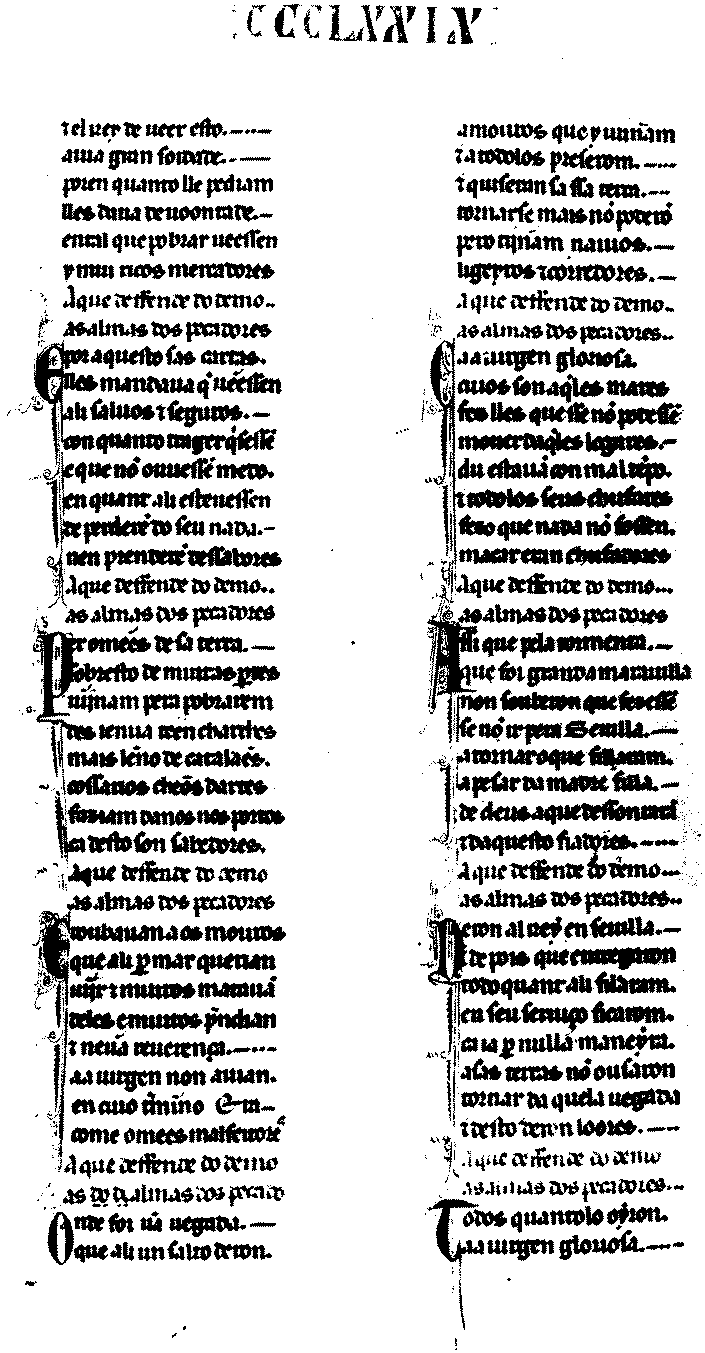 CCCLXXIX
τ el rey de ueer esto.
auia gran sońdade.
poren quanto lle pediam
lles daua de uoontade.
en tal que pobrar ueessen
y mui ricos mercadores
A que deffende do demo..
as almas dos pecadores
E por aquesto sas cartas.
lles mandaua q̇ uẽessen
ali saluos τ seguros.
con quanto trager q̇sessẽ
e que nõ ouuessẽ medo.
en quant ali esteuessen
de perderẽ do seu nada.
nen prenderẽ dessabores
A que deffende do demo..
as almas dos pecadores
Per omẽes de sa terra.
sobresto de muitas p̱tes
uijnnam pera pobrarem
mais leño de catalães.
cossarios chẽos dartes
faziam danos nos portos
ca desto son sabedores.
A que deffende do demo
as almas dos pecadores
E roubauan aos mouros
que ali p̱ mar querian
uijr τ muitos matauã
deles e muitos p̃ndian
τ neũa reuerença.
aa uirgen non auian.
en cuio t̃mino
come omees malfeitores
A que deffende do demo
as almas dos pecado
Onde foi ũa uegada.
que ali un salto deron.
a mouros que y uinnam
τ a todolos preserom.
τ quiseran sa ssa terra.
tornarse mais nõ poderõ
pero tijnnam nauios.
ligeyros τ corredores.
A que deffende do demo..
as almas dos pecadores..
Ca a uirgen gloriosa.
cuios son aq̇les mares
fez lles que sse nõ podessẽ
mouer daq̇les logares.
du estauã con mal tẽpo.
τ todolos seus chufares
fezo que nada nõ fossen.
macar eran chufadores
A que deffende do demo...
as almas dos pecadores
Assi que pela tormenta.
que foi granda marauilla
non souberon que fezessẽ
se nõ ir pera Seuilla.
a tornar o que fillaram.
a pesar da madre filla.
de deus a que dessonrrarã
τ daquesto fiadores.
A que deffende do demo...
as almas dos pecadores..
Deron al rey en seuilla.
τ depois que entregaron
todo quant ali fillaram.
en seu seruiço ficarom.
ca ia p̱ nulla maneyra.
a sas terras nõ ousaron
tornar daquela uegada
τ desto deron loores.
A que deffende do demo
as almas dos pecadores...
Todos quantolo oyron.
aa uirgen gloriosa.